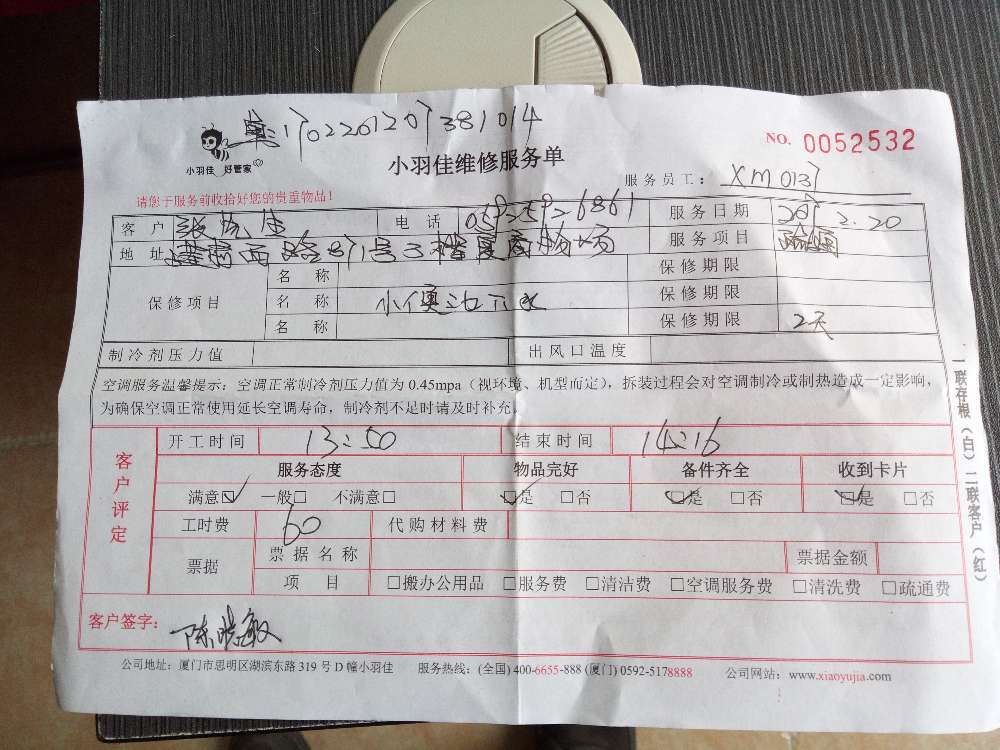 单:1702201207381014
小羽佳 好管家
小羽佳维修服务单
NO. 0052532
请您于服务前收拾好您的贵重物品!
服务员工: XM0137
客户 张 电话 0592-5926861 服务日期 2017.2.20
地址 莲前西路871号 服务项目 疏通
保修项目 名称 保修期限
名称 小便池下水 保修期限
名称 保修期限 2天
制冷剂压力值 出风口温度
空调服务温馨提示:空调正常制冷剂压力值为 0.45mpa(视环境、机型而定),拆装过程会对空调制冷或制热造成一定影响,
为确保空调正常使用延长空调寿命,制冷剂不足时请及时补充。
客户评定
开工时间 13:50 结束时间 14:16
服务态度 物品完好 备件齐全 收到卡片
满意☑ 一般□ 不满意□ ☑是 □否 ☑是 □否 ☑是 □否
工时费 60 代购材料费
票据 票据名称 票据金额
项目 □搬办公用品 □服务费 □清洁费 □空调服务费 □清洗费 □疏通费
客户签字: 陈晓敏
公司地址:厦门市思明区湖滨东路 319 号 D 幢小羽佳 服务热线:(全国) 400-6655-888 (厦门) 0592-5178888 公司网站:www.xiaoyujia.com
一联存根(白)二联客户(红)